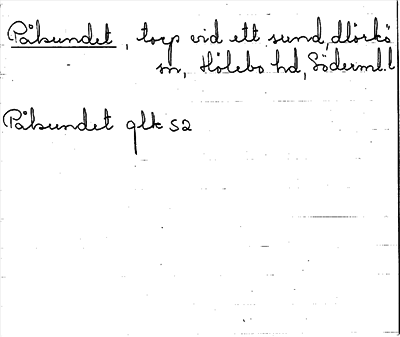 Pålsundet, torp vid ett sund, Mörkö
sn, Hölebo hd, Söderml. l
Pålsundet glk 52